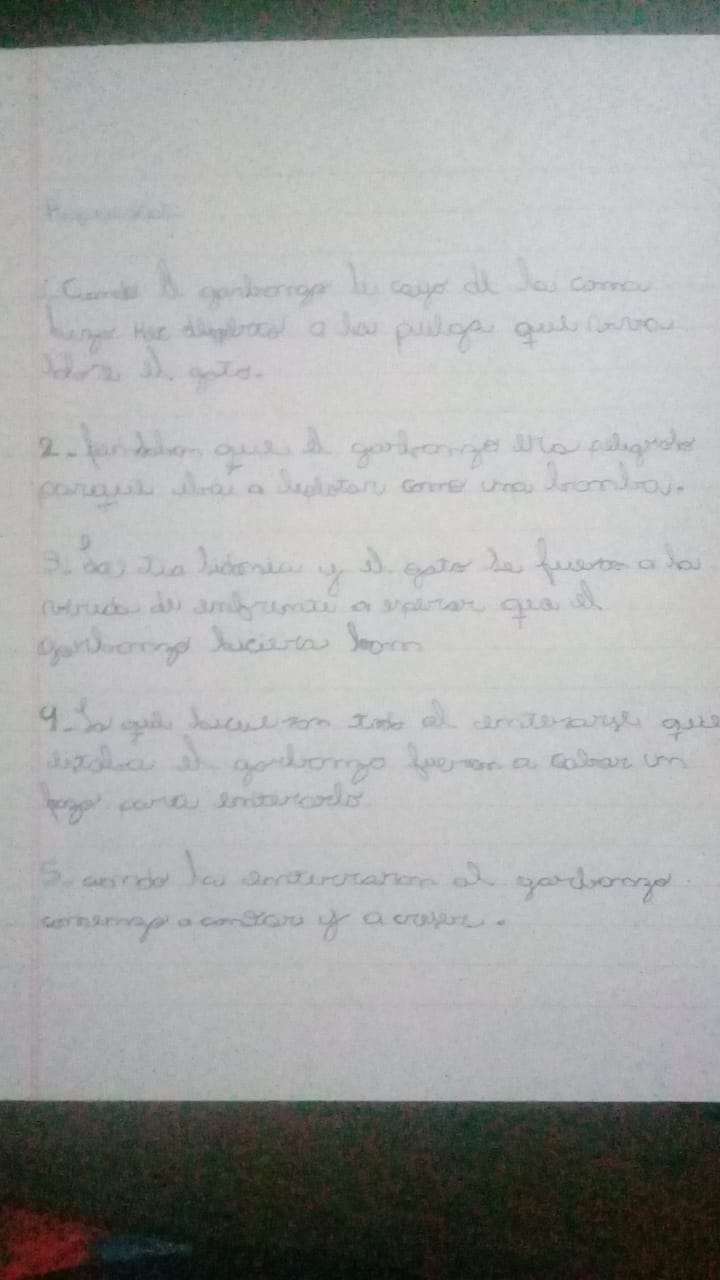 1. Cuando el garbanzo se cayo de la cama
a la pulga que
el gato.
2- pensaban que el garbanzo era peligroso
porque iba a explotar como una bomba.
3. La tia Sidonia y el gato se fueron a la
vereda de enfrente a esperar que el
garbanzo hiciera bom
4- Lo que hicieron todo al enterarse que
estaba el garbanzo fueron a cabar un
pozo para enterarlo
5- cuando la enterraron al garbanzo
comenzo a contar y a creser.